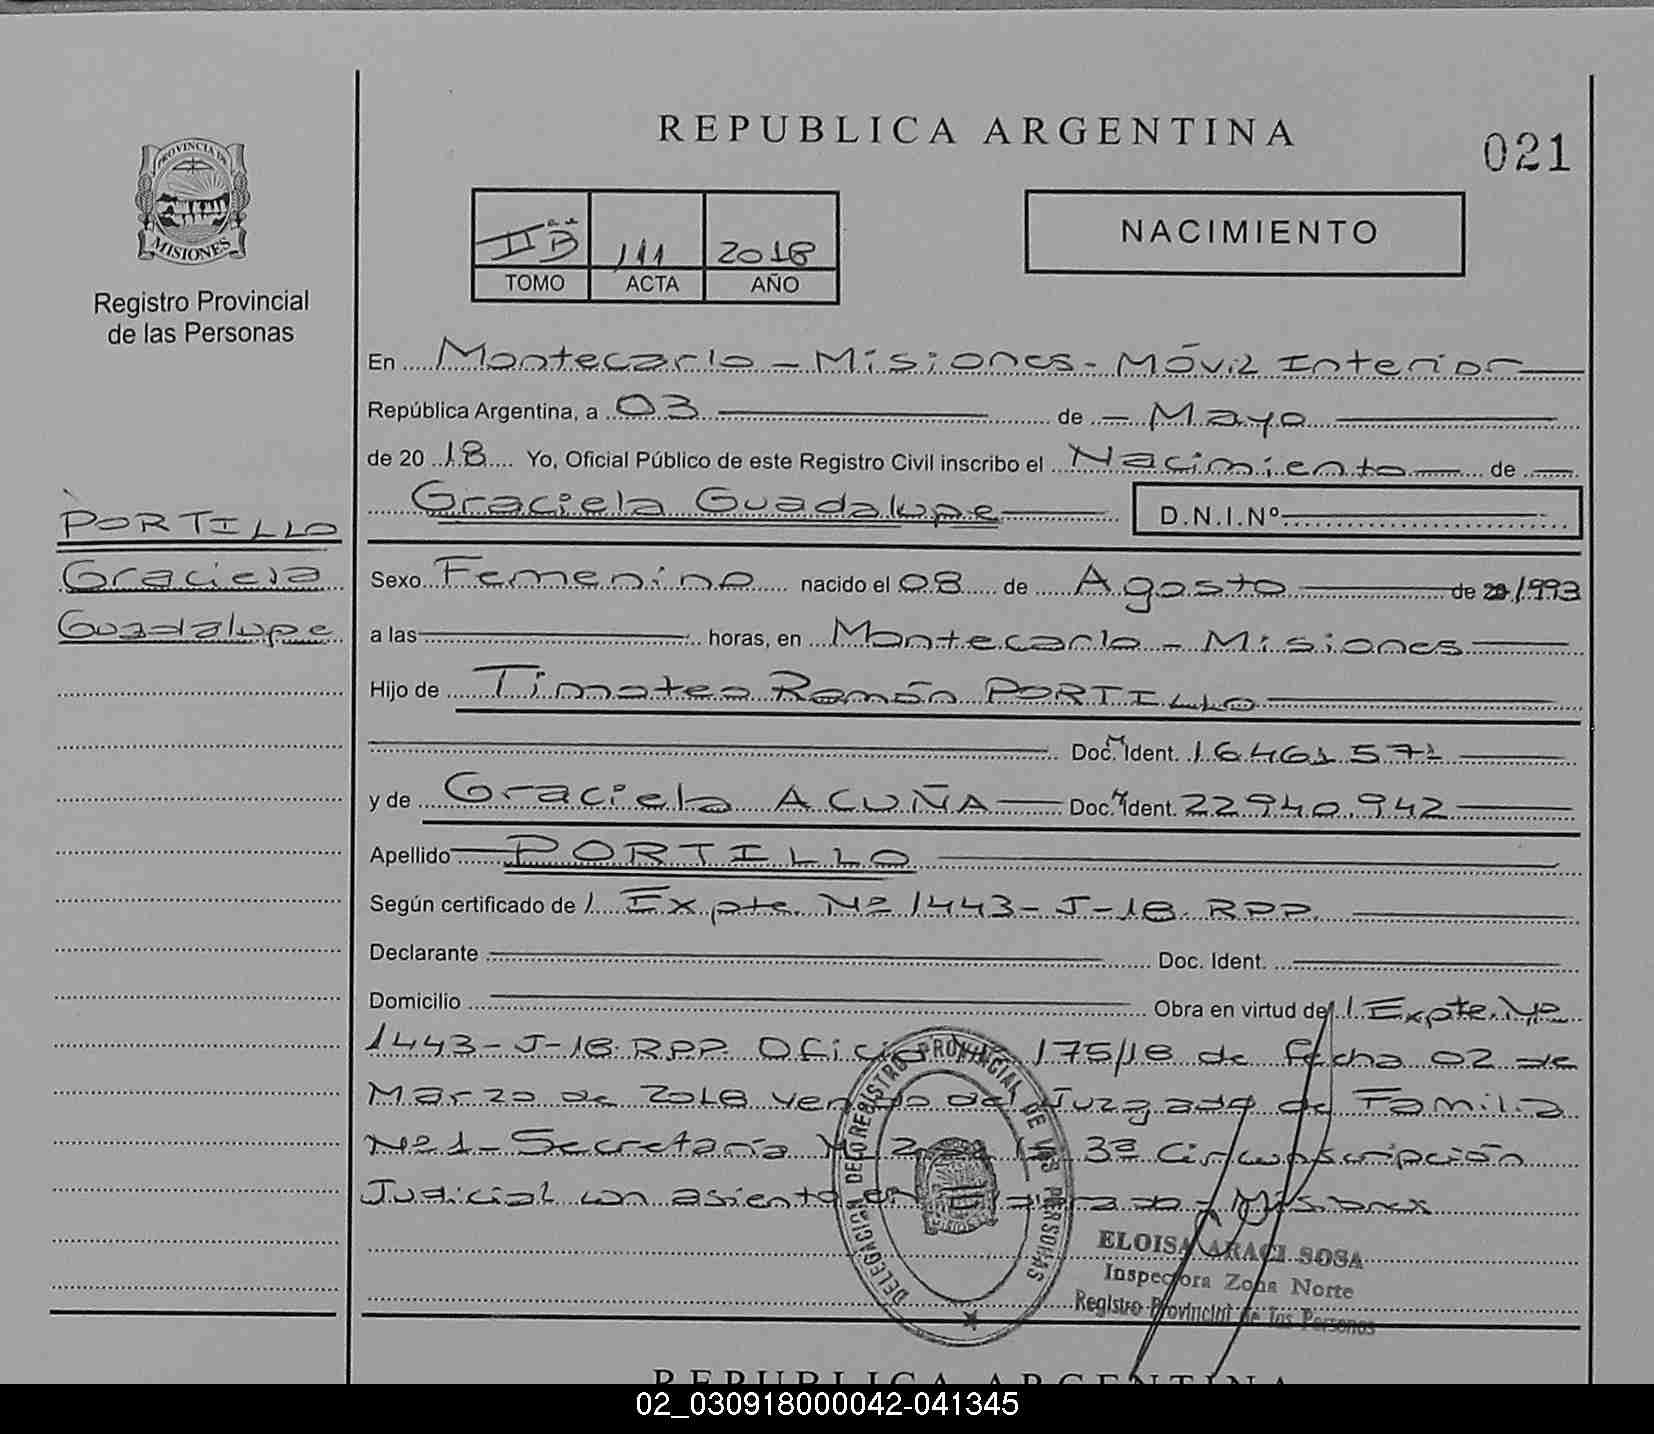 REPUBLICA ARGENTINA
021
PROVINCIA DE MISIONES
Registro Provincial
de las Personas
II B 111 2018
TOMO ACTA AÑO
NACIMIENTO
En Montecarlo - Misiones - Móvil Interior
República Argentina, a 03 de Mayo
de 2018 Yo, Oficial Público de este Registro Civil inscribo el Nacimiento de
Graciela Guadalupe D.N.I.Nº
PORTILLO
Graciela
Guadalupe
Sexo Femenino nacido el 08 de Agosto de 20 1993
a las horas, en Montecarlo - Misiones
Hijo de Timoteo Ramón PORTILLO
Doc. Ident. 16.461.571
y de Graciela ACUÑA Doc. Ident. 22.940.942
Apellido PORTILLO
Según certificado de Expte. Nº 1443-J-18. RPP
Declarante Doc. Ident.
Domicilio Obra en virtud de Expte. Nº
1443-J-18. RPP. Oficio 175/18 de fecha 02 de
Marzo de 2018 del Juzgado de Familia
Nº 1 - Secretaría Nº 2 3ª Circunscripción
Judicial con asiento en - Misiones
DELEGACION DEL REGISTRO PROVINCIAL DE LAS PERSONAS
ELOISA ARACI SOSA
Inspectora Zona Norte
Registro Provincial de las Personas
REPUBLICA ARGENTINA
02_030918000042-041345